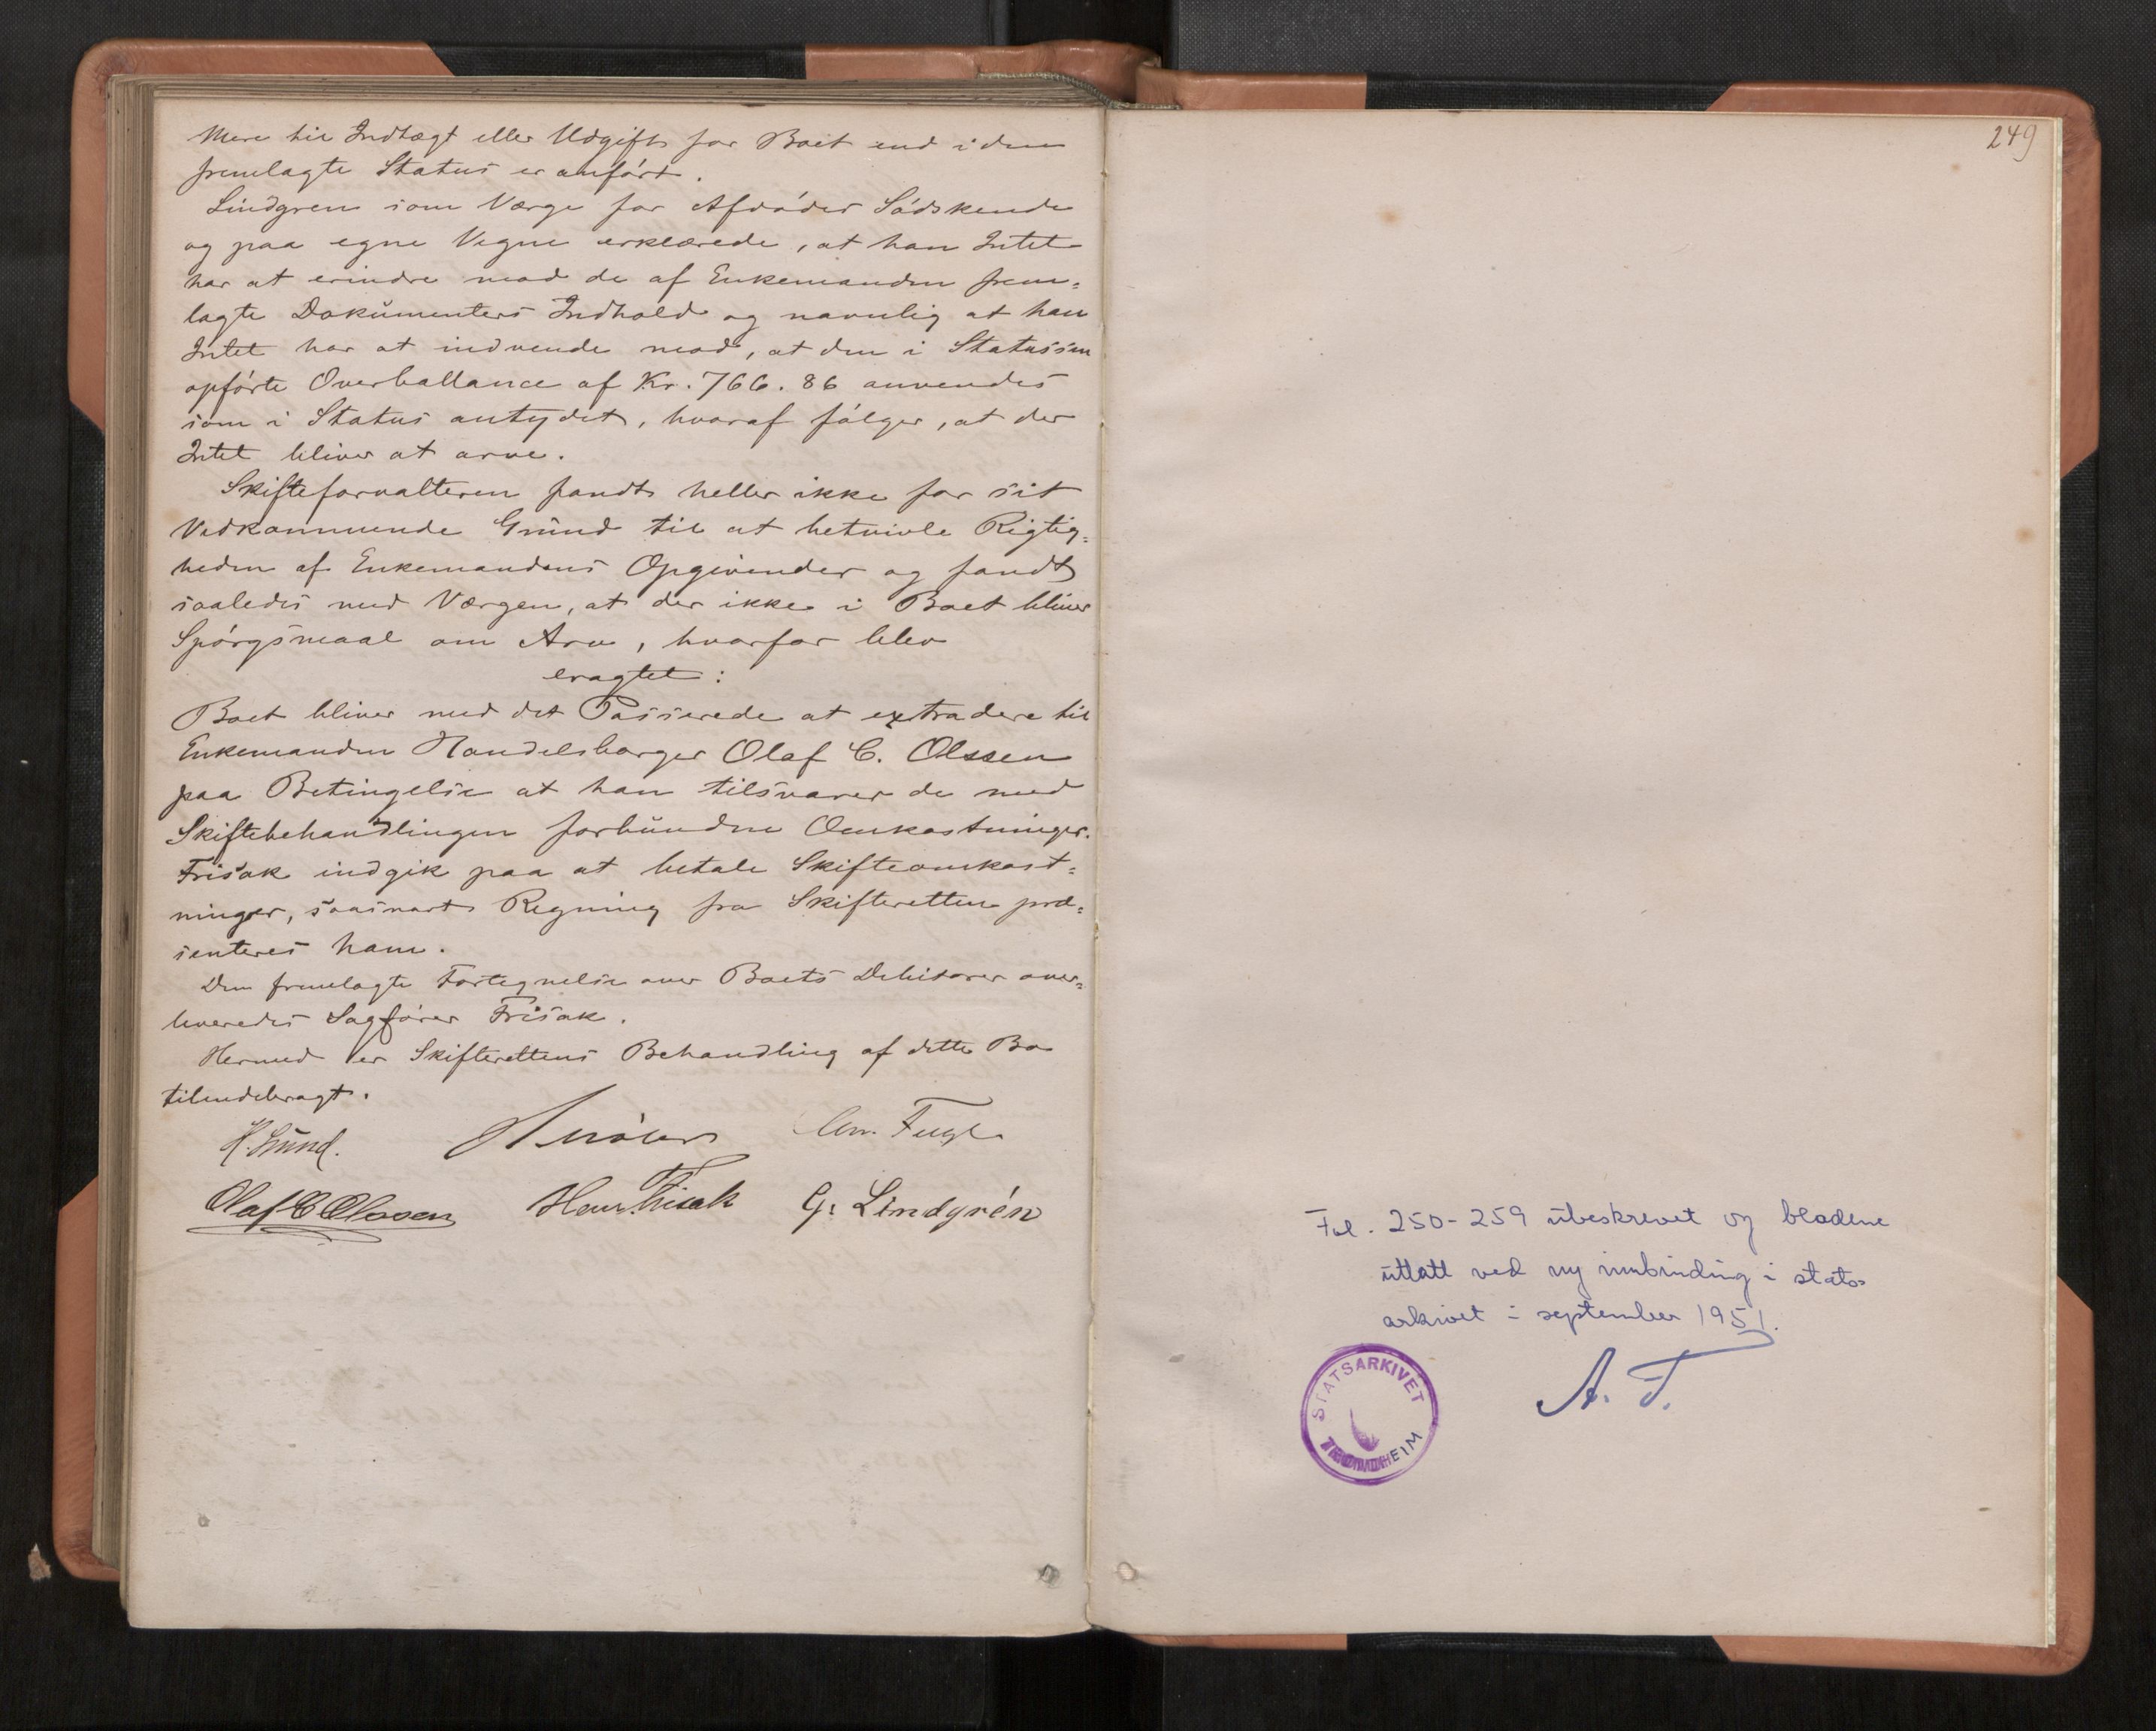 Mere til Indtægt eller Udgift for Boet end i den
fremlagte Status er anført.
Lindgren som Værge for Afdødes Sødskende
og paa egne Vegne erklærede, at han Intet
har at erindre mod de af Enkemanden frem=
lagte Dokumenters Indhold og navnlig at han
Intet har at indvende mod, at den i Statussen
opførte Overballance af Kr. 766.86 anvendes
som i Status antydet, hvoraf følger, at der
Intet bliver at arve.
Skifteforvalteren fandt heller ikke for sit
Vedkommende Grund til at betvivle Rigtig=
heden af Enkemandens Opgivender og fandt
saaledes med Værgen, at der ikke i Boet bliver
Spørgsmaal om Arv, hvorfor blev
eragtet:
Boet bliver med det Passerede at extradere til
Enkemanden Handelsborger Olaf C. Olssen
paa Betingelse at han tilsvarer de med
Skiftebehandlingen forbundne Omkostninger.
Frisak indgik paa at betale Skifteomkost=
ninger, saasnart Regning fra Skifteretten præ=
senteres ham.
Den fremlagte Fortegnelse over Boets Debitorer over=
leveredes Sagfører Frisak.
Hermed er Skifterettens Behandling af dette Bo
tilendebragt.
H. Lund. Chr. Fugl
Olaf C Olssen Hans Frisak G. Lindgrén
249
Fol. 250-259 ubeskrevet og bladene
uttatt ved ny innbinding i stats=
arkivet i september 1951.
A. T.
STATSARKIVET
TRONDHEIM